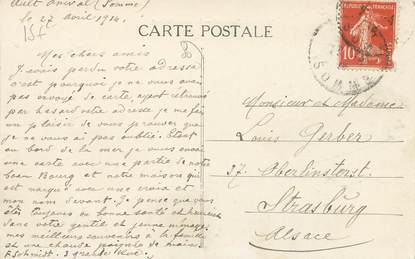 Ault Onival (Somme)
le 27 avril 1914.
CARTE POSTALE
Mes chers amis
J'avais perdu votre adresse
c'est pourquoi je ne vous avais
pas envoyé la carte, ayant retrouvé
par hasard votre adresse je me fais
un plaisir de vous prouver que
je ne vous ai pas oublié. Etant
au bord de la mer je vous envoi
une carte avec une partie de notre
beau Bourg et notre maison qui
est marqué avec une croix et
mon nom devant. Je pense que vous
êtes toujours en bonne santé et heureux
dans votre gentil et jeune ménage
mes meilleurs souvenirs à la famille
et une chaude poignée de mains
F Schmidt. 3 grande Rue.
Monsieur et Madame
Louis Gerber
37. Oberlinsterst.
Strasburg
Alsace
REPUBLIQUE FRANÇAISE
10